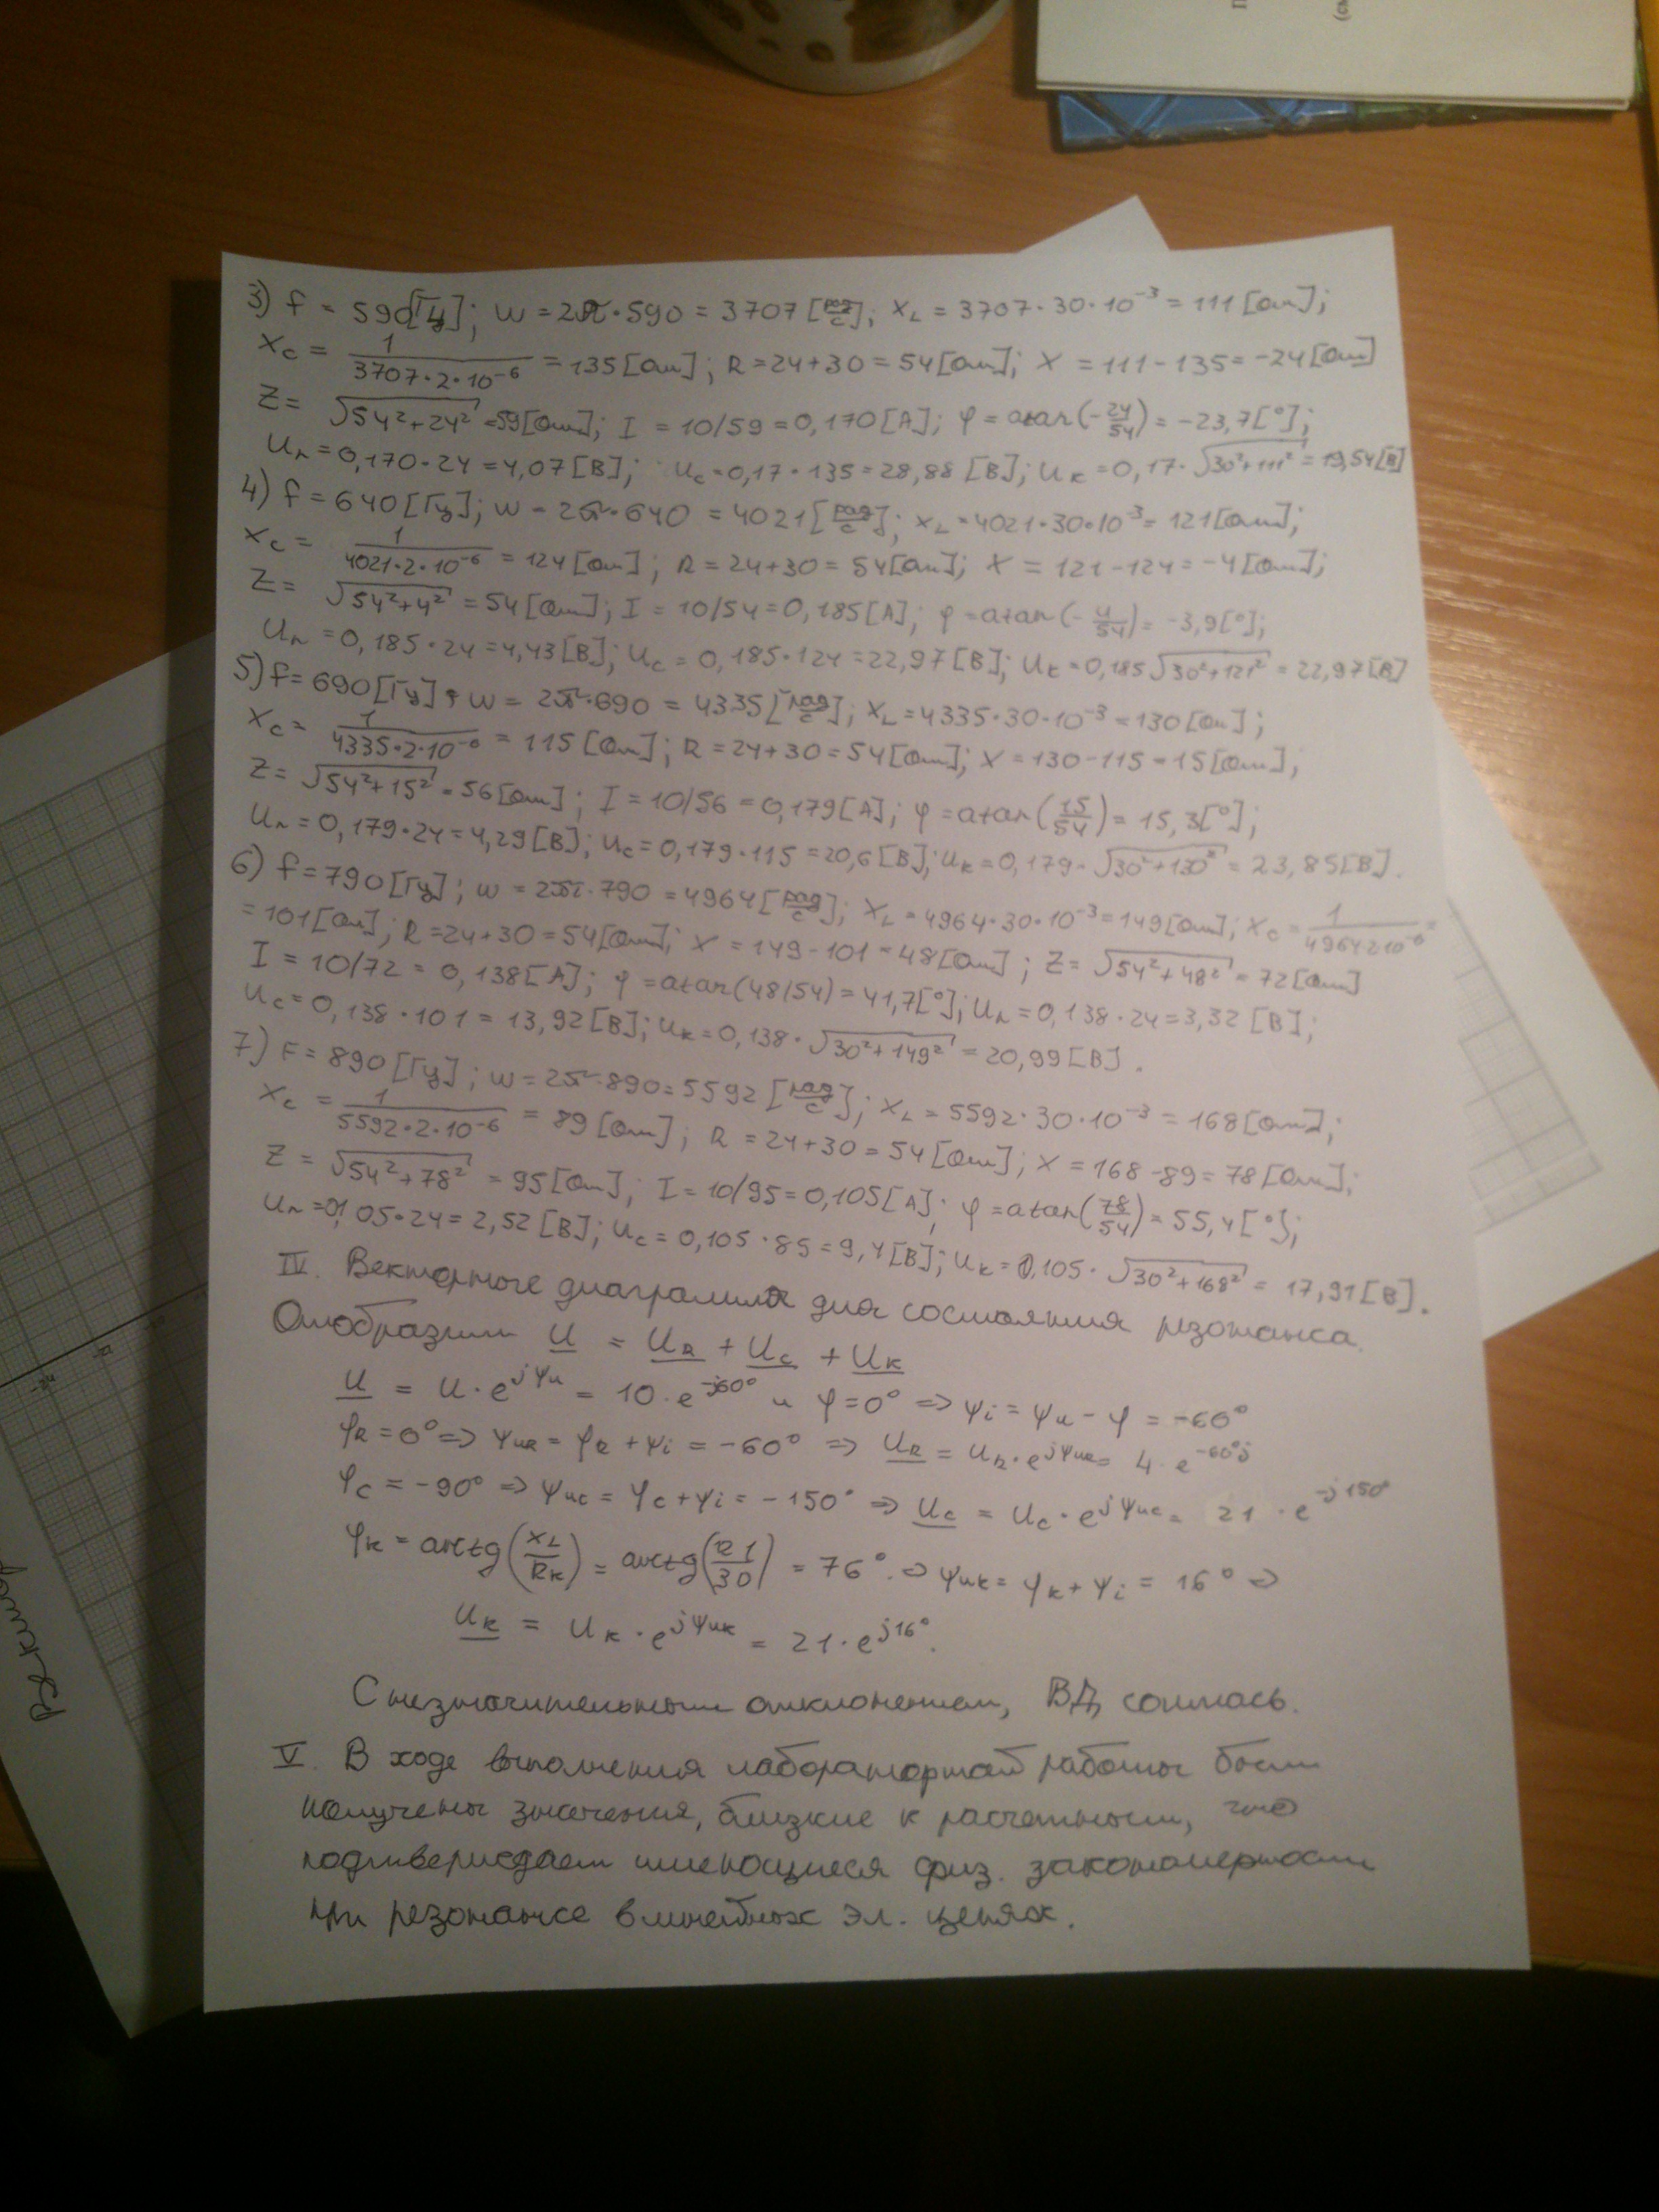 3) f = 590[Гц]; w = 2π·590 = 3707 [рад/с]; X_L = 3707·30·10⁻³ = 111 [Ом];
X_C = 1/(3707·2·10⁻⁶) = 135 [Ом]; R = 24+30 = 54 [Ом]; X = 111-135 = -24 [Ом]
Z = √(54²+24²) = 59[Ом]; I = 10/59 = 0,170 [А]; φ = atan(-24/54) = -23,7[°];
U_R = 0,170·24 = 4,07 [В]; U_C = 0,17·135 = 28,88 [В]; U_K = 0,17·√(30²+111²) = 19,54[В]
4) f = 640 [Гц]; w = 2π·640 = 4021 [рад/с]; X_L = 4021·30·10⁻³ = 121 [Ом];
X_C = 1/(4021·2·10⁻⁶) = 124 [Ом]; R = 24+30 = 54 [Ом]; X = 121-124 = -4 [Ом];
Z = √(54²+4²) = 54 [Ом]; I = 10/54 = 0,185 [А]; φ = atan(-4/54) = -3,9[°];
U_R = 0,185·24 = 4,43 [В]; U_C = 0,185·124 = 22,97 [В]; U_K = 0,185 √(30²+121²) = 22,97 [В]
5) f = 690 [Гц]; w = 2π·690 = 4335 [рад/с]; X_L = 4335·30·10⁻³ = 130 [Ом];
X_C = 1/(4335·2·10⁻⁶) = 115 [Ом]; R = 24+30 = 54 [Ом]; X = 130-115 = 15 [Ом];
Z = √(54²+15²) = 56 [Ом]; I = 10/56 = 0,179 [А]; φ = atan(15/54) = 15,3[°];
U_R = 0,179·24 = 4,29 [В]; U_C = 0,179·115 = 20,6 [В]; U_K = 0,179·√(30²+130²) = 23,85 [В].
6) f = 790 [Гц]; w = 2π·790 = 4964 [рад/с]; X_L = 4964·30·10⁻³ = 149 [Ом]; X_C = 1/(4964·2·10⁻⁶) =
= 101 [Ом]; R = 24+30 = 54 [Ом]; X = 149-101 = 48 [Ом]; Z = √(54²+48²) = 72 [Ом]
I = 10/72 = 0,138 [А]; φ = atan(48/54) = 41,7[°]; U_R = 0,138·24 = 3,32 [В];
U_C = 0,138·101 = 13,92 [В]; U_K = 0,138·√(30²+149²) = 20,99 [В].
7) F = 890 [Гц]; w = 2π·890 = 5592 [рад/с]; X_L = 5592·30·10⁻³ = 168 [Ом];
X_C = 1/(5592·2·10⁻⁶) = 89 [Ом]; R = 24+30 = 54 [Ом]; X = 168-89 = 78 [Ом];
Z = √(54²+78²) = 95 [Ом]; I = 10/95 = 0,105 [А]; φ = atan(78/54) = 55,4[°];
U_R = 0,105·24 = 2,52 [В]; U_C = 0,105·85 = 9,4 [В]; U_K = 0,105·√(30²+168²) = 17,91 [В].
IV. Векторные диаграммы для состояния резонанса
Отобразим U = U_R + U_C + U_K
U = U·e^(jψu) = 10·e^(-j60°) и φ = 0° => ψi = ψu - φ = -60°
φ_R = 0° => ψ_uR = φ_R + ψi = -60° => U_R = U_R·e^(jψuR) = 4·e^(-60°j)
φ_C = -90° => ψ_uC = φ_C + ψi = -150° => U_C = U_C·e^(jψuC) = 21·e^(-j150°)
φ_K = arctg(X_L/R_K) = arctg(121/30) = 76° => ψ_uK = φ_K + ψi = 16° =>
U_K = U_K·e^(jψuK) = 21·e^(j16°).
С незначительным отклонением, ВД сошлась.
V. В ходе выполнения лабораторной работы были
получены значения, близкие к расчетным, что
подтверждает имеющиеся физ. закономерности
при резонансе в линейных эл. цепях.